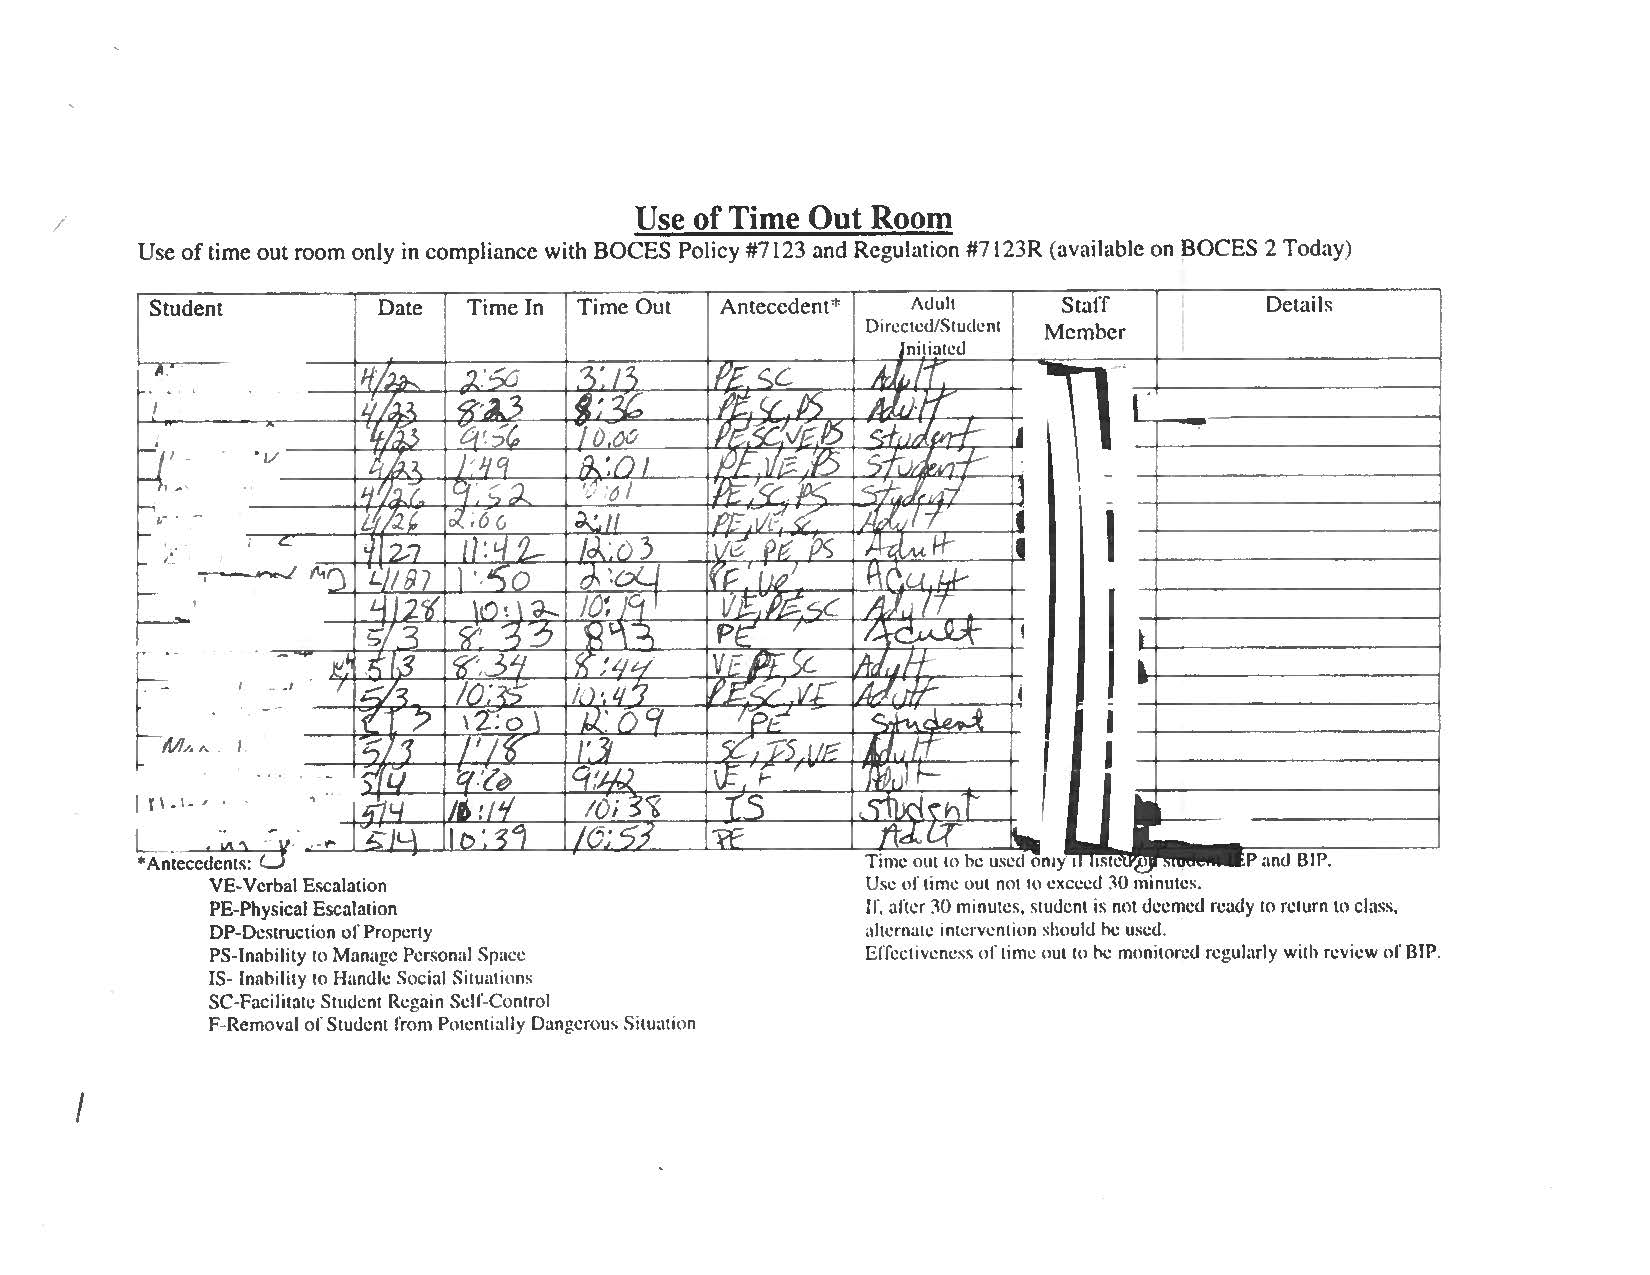 Use of Time Out Room
Use of time out room only in compliance with BOCES Policy #7123 and Regulation #7123R (available on BOCES 2 Today)
Student Date Time In Time Out Antecedent* Adult Directed/Student Initiated Staff Member Details
4/22 2:50 3:13 PE, SC Adult
4/23 8:23 8:36 PE, SC, PS Adult
4/23 9:56 10:00 PE, SC, VE, PS Student
4/23 1:49 2:01 PE, VE, PS Student
4/26 9:52 PE, SC, PS Student
4/26 2:06 2:11 PE, VE, SC Adult
4/27 11:42 12:03 VE, PE, PS Adult
1:50 2:04 PE, VE Adult
4/28 10:12 10:19 VE, PE, SC Adult
5/3 8:33 843 PE Adult
5/3 8:34 8:44 VE PE SC Adult
5/3 10:35 10:43 PE, SC, VE Adult
12:01 12:09 PE Student
5/3 1:18 1:31 SC, IS, VE Adult
5/4 9:42 VE, F Adult
5/4 10:14 10:38 IS Student
5/4 10:39 10:53 PE Adult
*Antecedents:
VE-Verbal Escalation
PE-Physical Escalation
DP-Destruction of Property
PS-Inability to Manage Personal Space
IS- Inability to Handle Social Situations
SC-Facilitate Student Regain Self-Control
F-Removal of Student from Potentially Dangerous Situation
Time out to be used only if listed on student IEP and BIP.
Use of time out not to exceed 30 minutes.
If, after 30 minutes, student is not deemed ready to return to class,
alternate intervention should be used.
Effectiveness of time out to be monitored regularly with review of BIP.